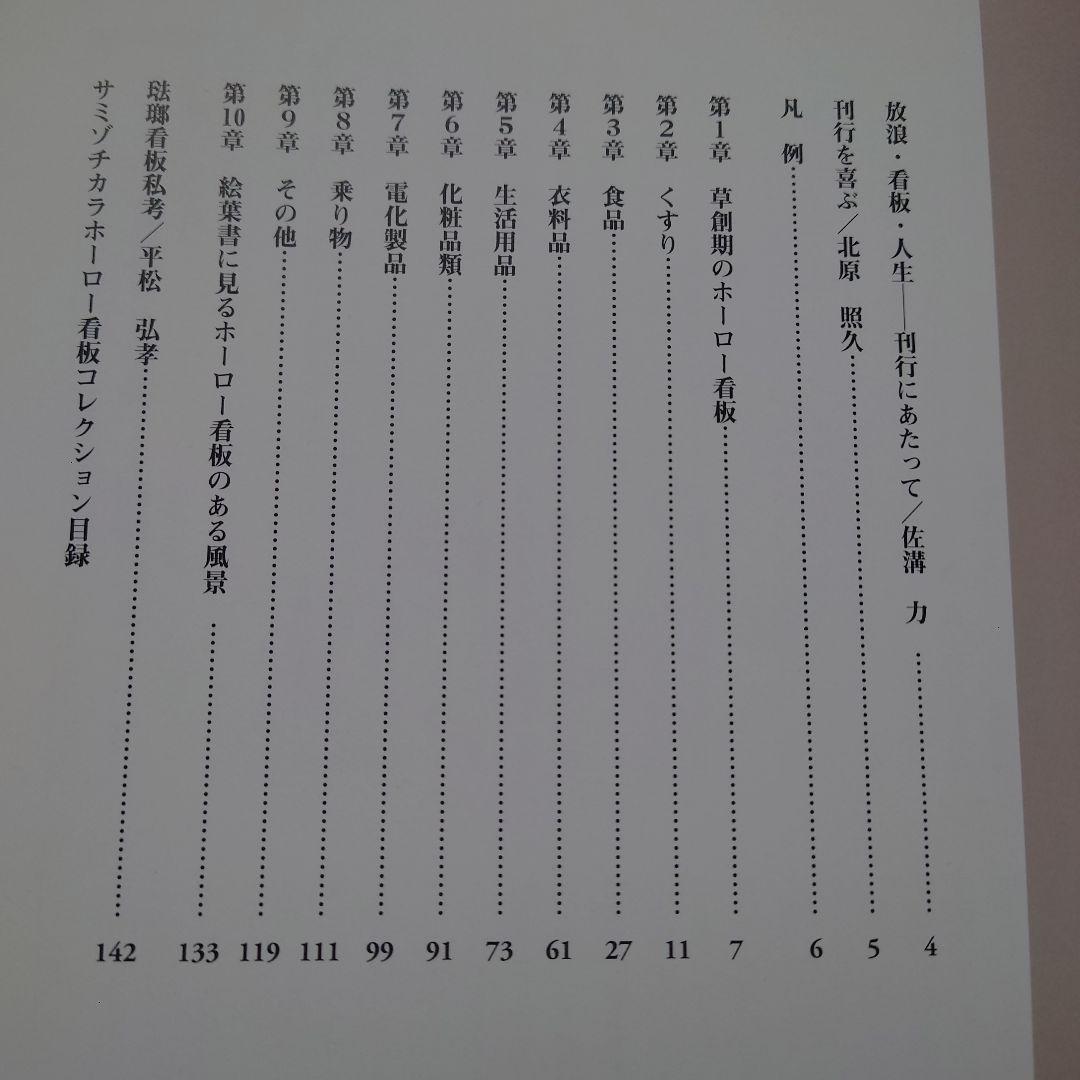 放浪・看板・人生――刊行にあたって／佐溝　力……4
刊行を喜ぶ／北原　照久……5
凡　例……6
第1章　草創期のホーロー看板……7
第2章　くすり……11
第3章　食品……27
第4章　衣料品……61
第5章　生活用品……73
第6章　化粧品類……91
第7章　電化製品……99
第8章　乗り物……111
第9章　その他……119
第10章　絵葉書に見るホーロー看板のある風景……133
琺瑯看板私考／平松　弘孝……142
サミゾチカラホーロー看板コレクション目録